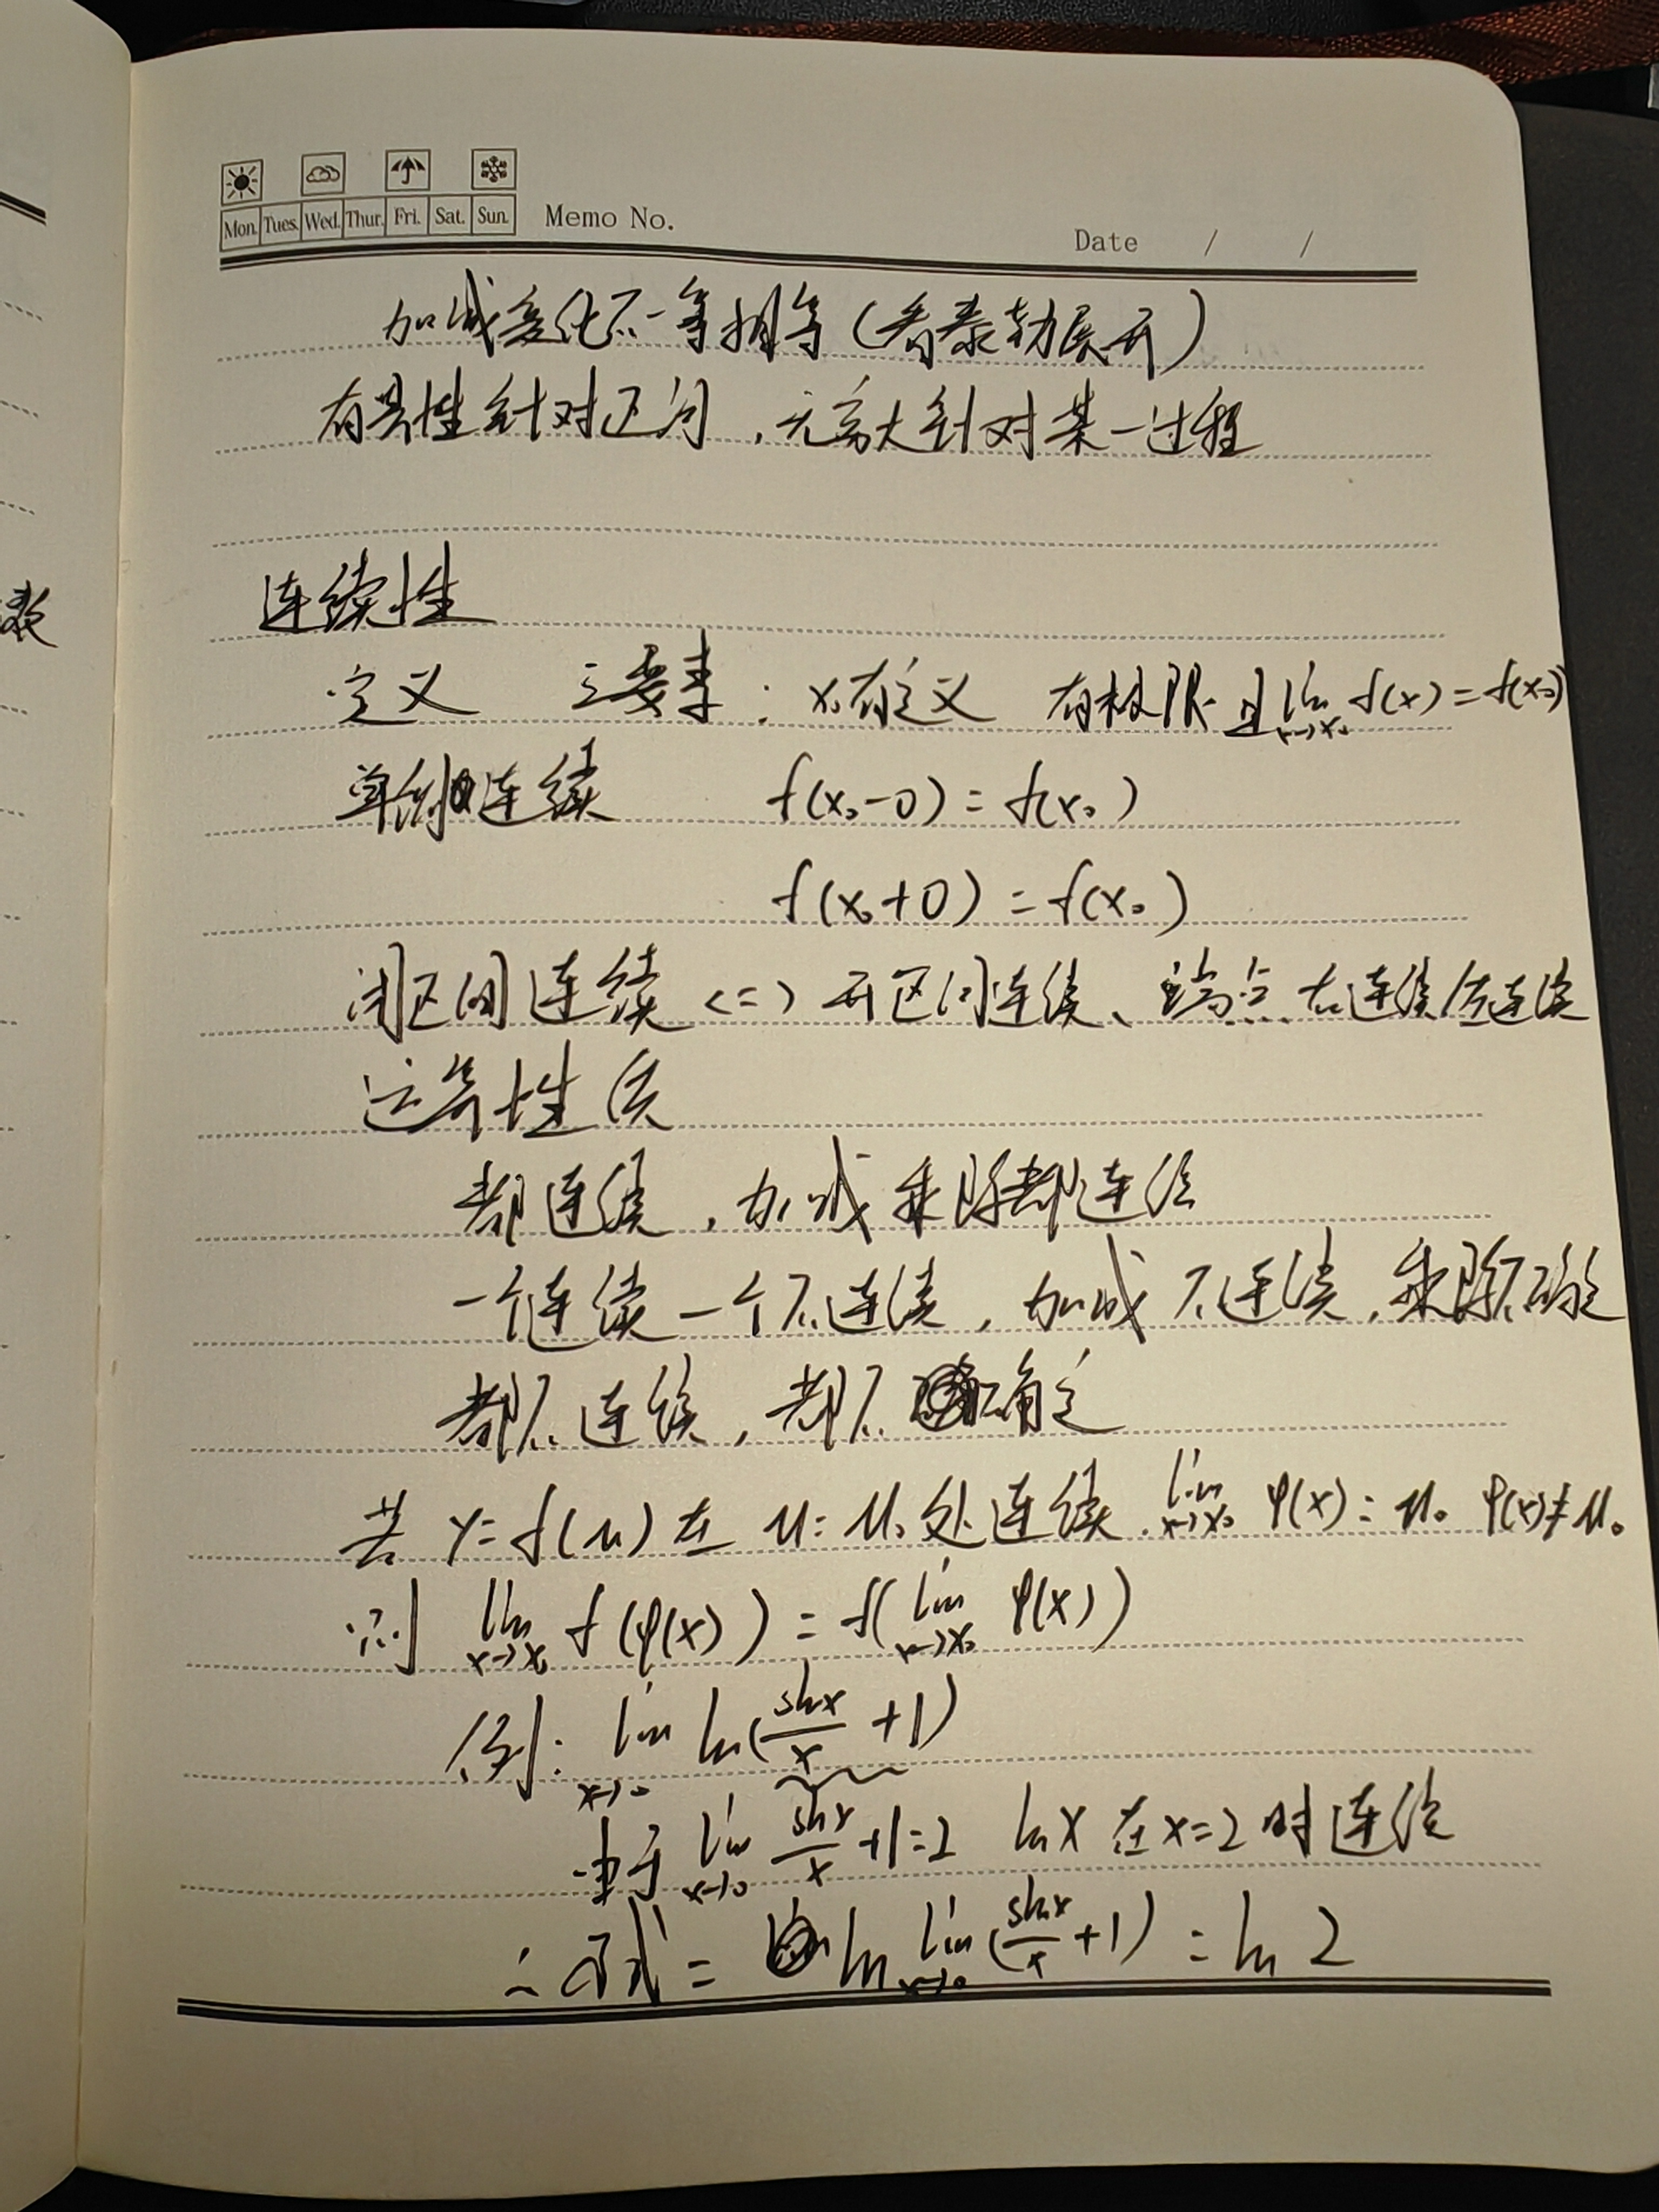 Mon. Tues. Wed. Thur. Fri. Sat. Sun. Memo No.
Date / /
加减变化不一等相等(看泰勒展开)
有界性针对区间,无穷大针对某一过程
连续性
定义 三要素:x₀有定义 有极限 且lim x→x₀ f(x)=f(x₀)
单侧连续 f(x₀-0)=f(x₀)
f(x₀+0)=f(x₀)
闭区间连续<=>开区间连续、端点右连续/左连续
运算性质
都连续,加减乘除都连续
一个连续一个不连续,加减不连续,乘除不确定
都不连续,都不确定
若 y=f(u)在 u=u₀处连续.lim x→x₀ φ(x)=u₀ φ(x)≠u₀
则 lim x→x₀ f(φ(x))=f(lim x→x₀ φ(x))
例: lim x→0 ln(sinx/x +1)
由于 lim x→0 sinx/x +1=2 lnx在x=2时连续
∴原式= ln lim x→0 (sinx/x +1)=ln 2